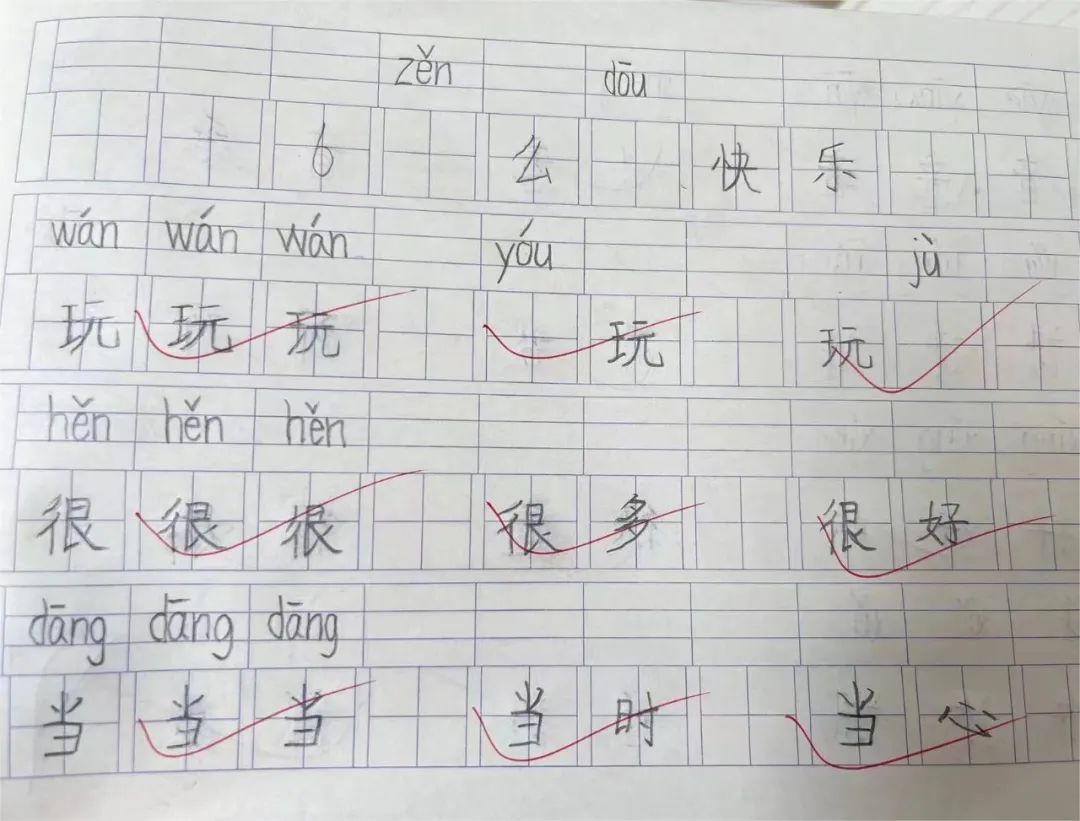 zěn dōu
6 么 快 乐
wán wán wán yóu jù
玩 玩 玩 玩 玩
hěn hěn hěn
很 很 很 很 多 很 好
dāng dāng dāng
当 当 当 当 时 当 心